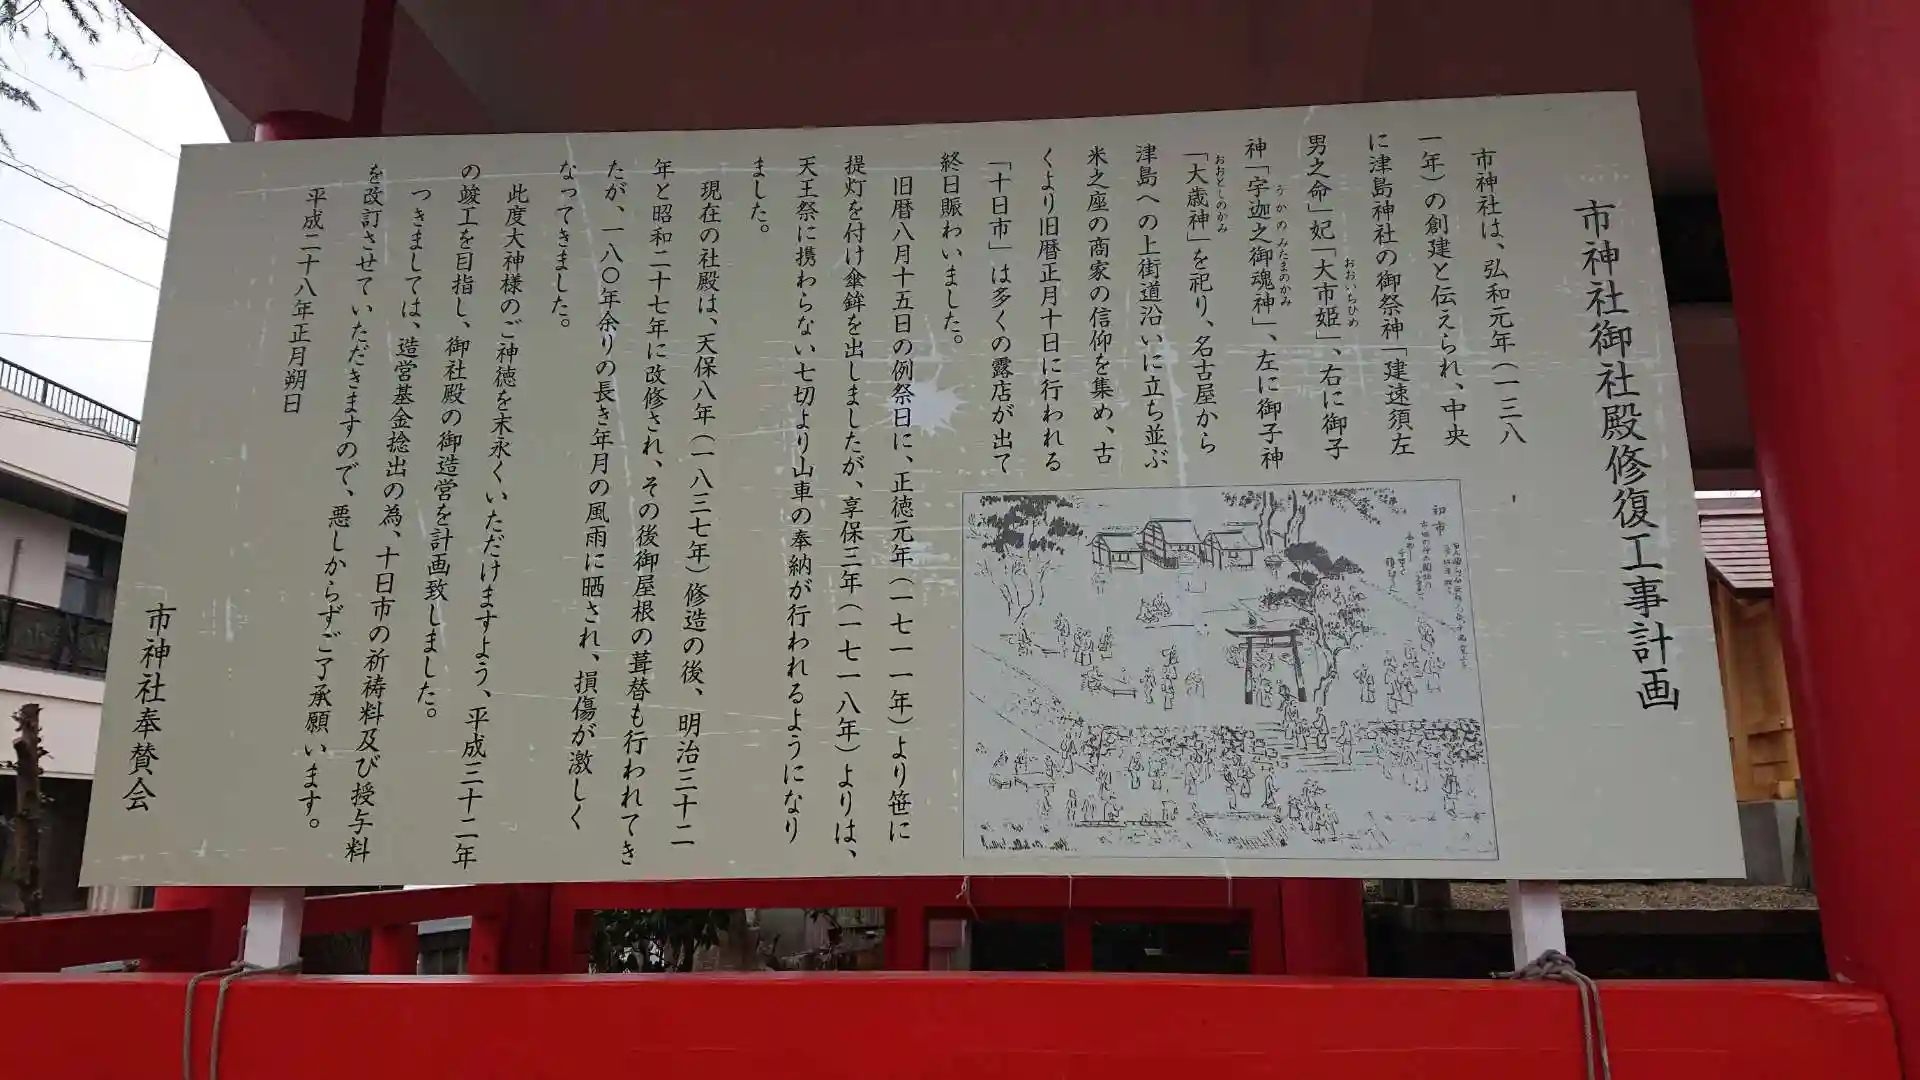 市神社御社殿修復工事計画
市神社は、弘和元年（一三八
一年）の創建と伝えられ、中央
に津島神社の御祭神「建速須左
男之命」妃「大市姫」、右に御子
おおいちひめ
神「宇迦之御魂神」、左に御子神
うかのみたまのかみ
「大歳神」を祀り、名古屋から
おおとしのかみ
津島への上街道沿いに立ち並ぶ
米之座の商家の信仰を集め、古
くより旧暦正月十日に行われる
「十日市」は多くの露店が出て
終日賑わいました。
旧暦八月十五日の例祭日に、正徳元年（一七一一年）より笹に
提灯を付け傘鉾を出しましたが、享保三年（一七一八年）よりは、
天王祭に携わらない七切より山車の奉納が行われるようになり
ました。
現在の社殿は、天保八年（一八三七年）修造の後、明治三十二
年と昭和二十七年に改修され、その後御屋根の葺替も行われてき
たが、一八〇年余りの長き年月の風雨に晒され、損傷が激しく
なってきました。
此度大神様のご神徳を末永くいただけますよう、平成三十二年
の竣工を目指し、御社殿の御造営を計画致しました。
つきましては、造営基金捻出の為、十日市の祈祷料及び授与料
を改訂させていただきますので、悪しからずご了承願います。
平成二十八年正月朔日
市神社奉賛会
初市